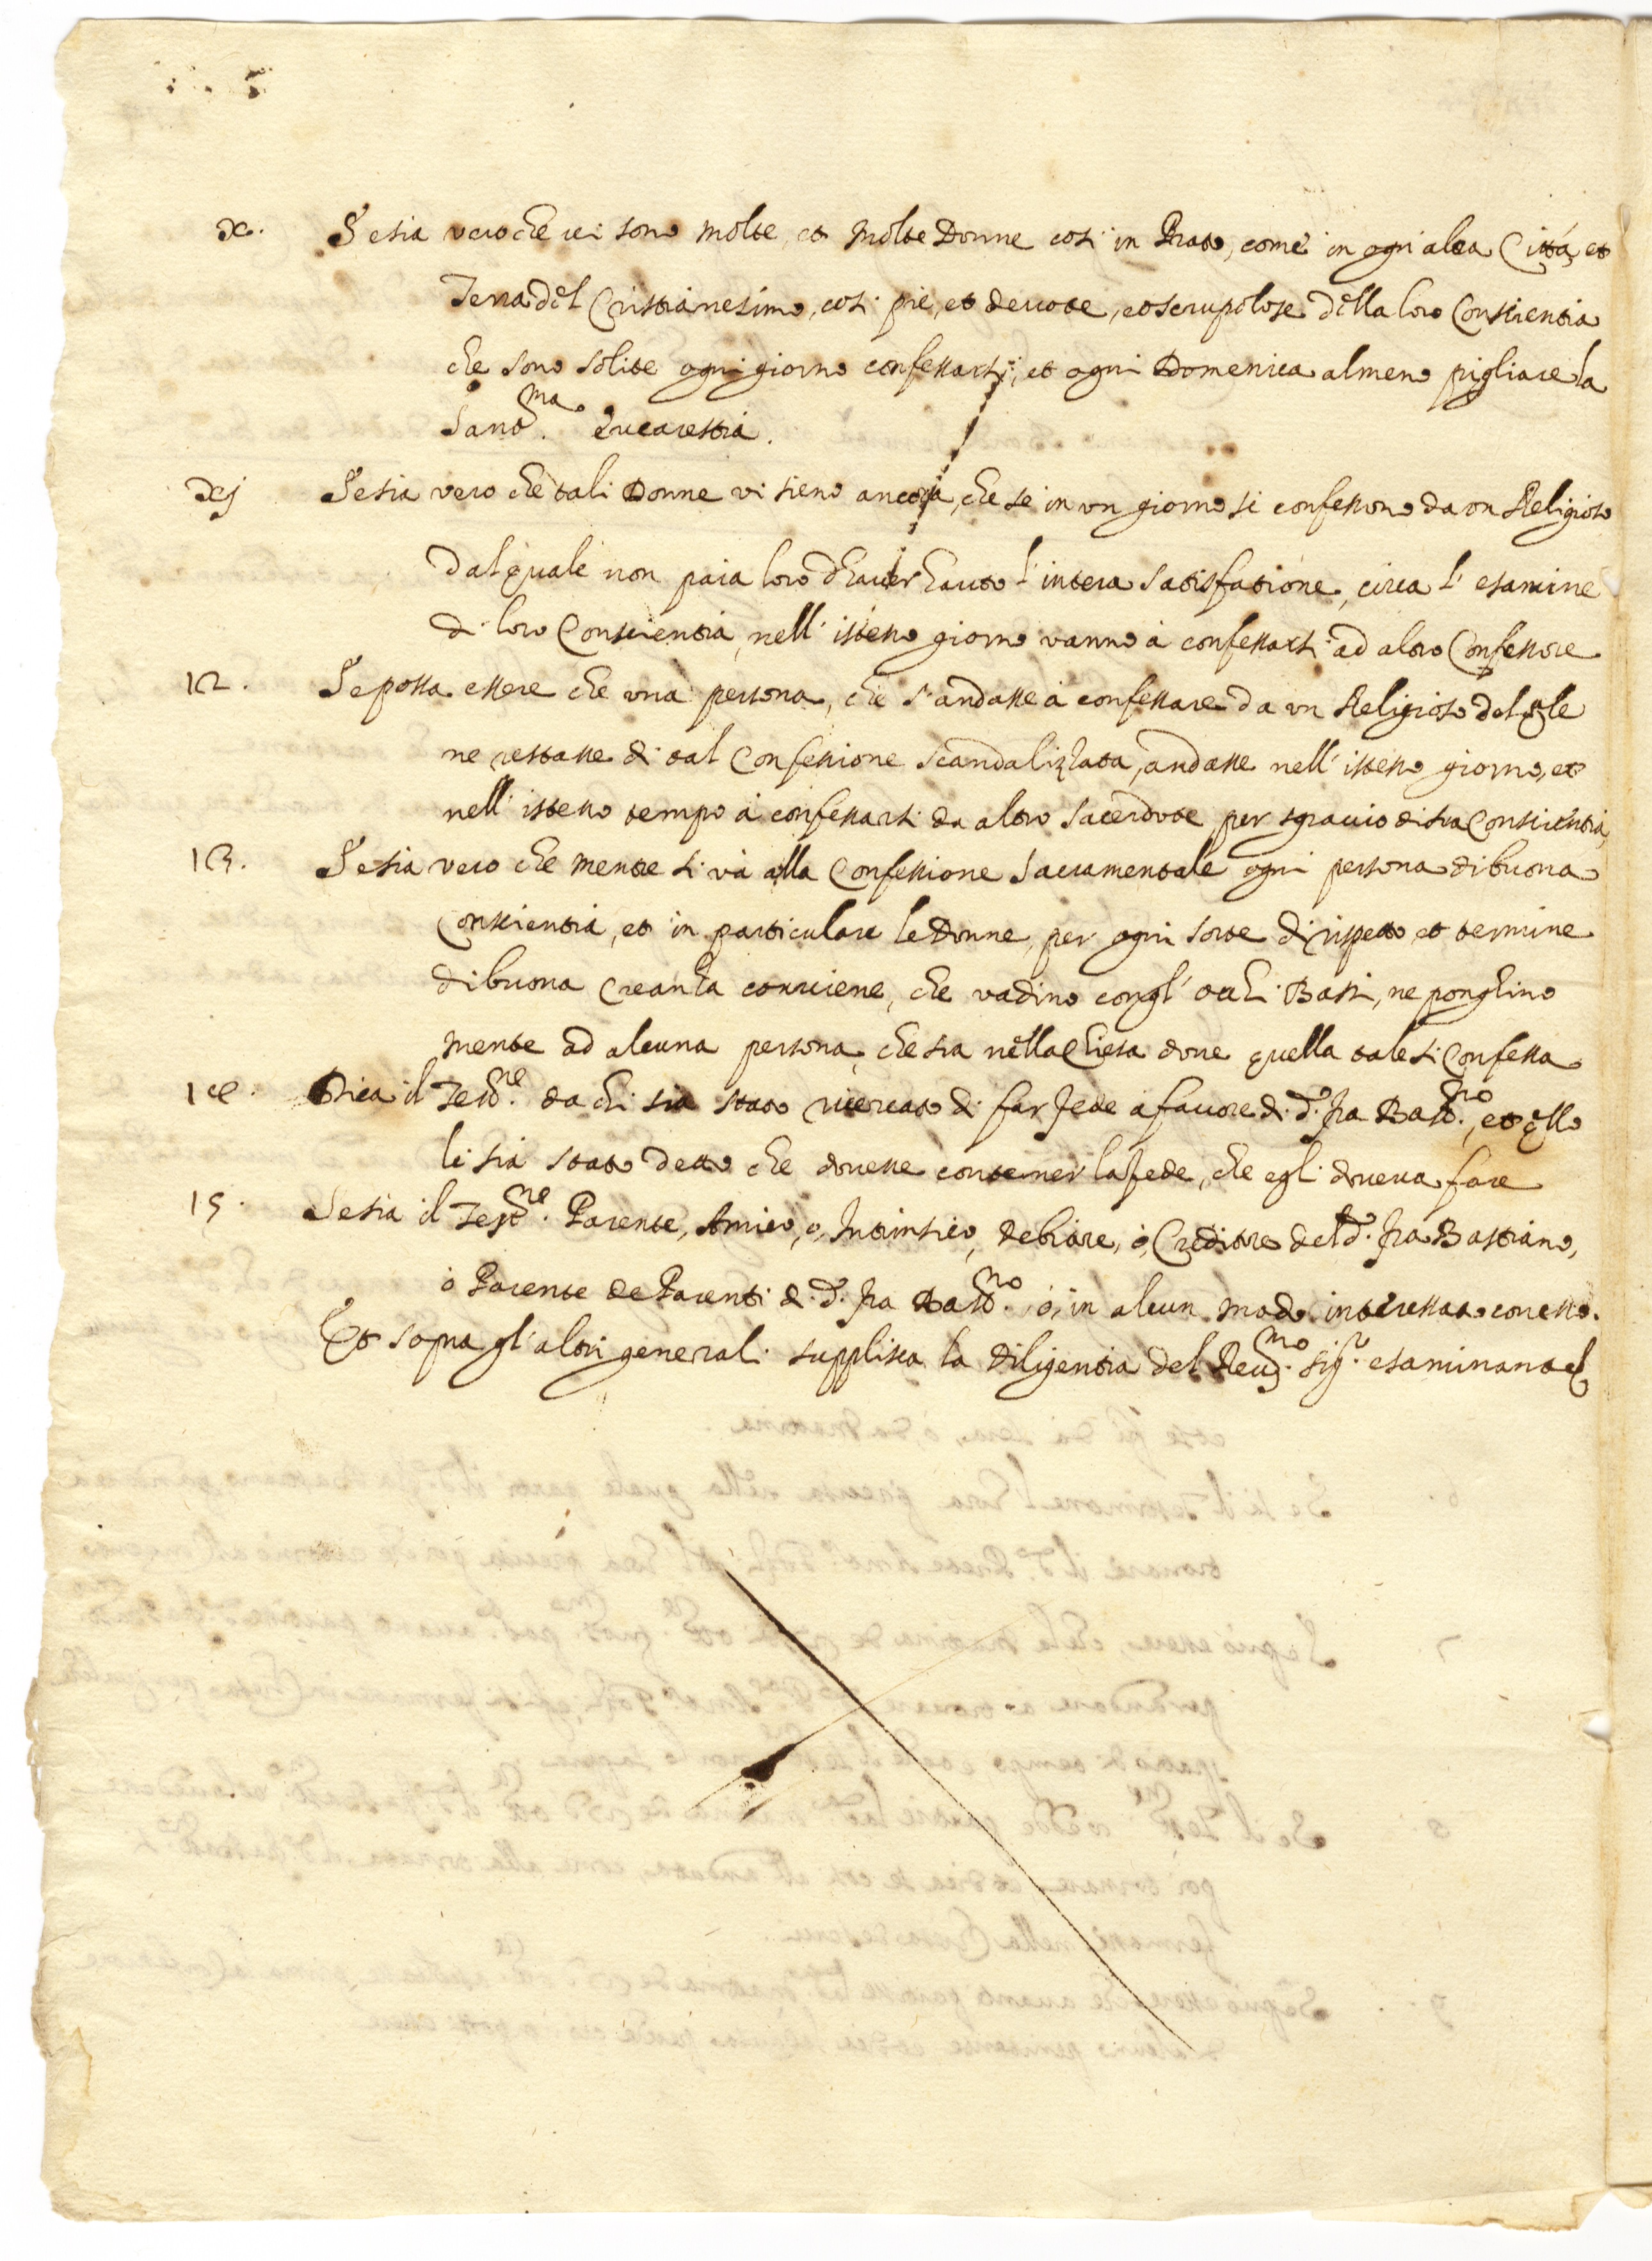 x. Se sia vero che vei sono molte, et molte Donne così in Prato, come in ogni altra Città, et
Terra del Cristianesimo, così pie, et devote, et scrupolose della loro Conscientia
che sono solite ogni giorno confessarsi, et ogni Domenica almeno pigliare la
Sant.ma Eucarestia.
xj Se sia vero che tali Donne vi sieno ancora, che se in un giorno si confessono da un Religioso
dal quale non paia loro d'haver hauto l'intera satisfatione, circa l'esamine
di loro Conscientia, nell'istesso giorno vanno à confessarsi ad altro Confessore
12. Se possa essere che una persona, che s'andasse à confessare da un Religioso dal qle
ne restasse di tal Confessione scandalizzata, andasse nell'istesso giorno, et
nell'istesso tempo à confessarsi da altro sacerdote per sgravio di sua Conscientia
13. Se sia vero che mentre si và alla Confessione Sacramentale ogni persona di buona
Conscientia, et in particulare le Donne, per ogni sorte di rispetto et termine
di buona Creanza conviene, che vadino con gl'occhi Bassi, ne ponghino
mente ad alcuna persona, che sia nella Chiesa dove quella tale si Confessa
14. Dica il Test.ne da chi sia stato ricercato di far fede à favore di d.o fra Bast.no, et qllo
li sia stato detto che dovesse contener la fede, che egli doveva fare
15. Se sia il Test.ne Parente, Amico, o, Intrinsico, Debitore, ò, Creditore del d.o fra Bastiano,
ò Parente de Parenti di d.o fra Bast.no ò, in alcun modo interessato con esso.
Et sopra gl'altri generali supplisca la diligentia del Rev.mo Sig.r esaminante